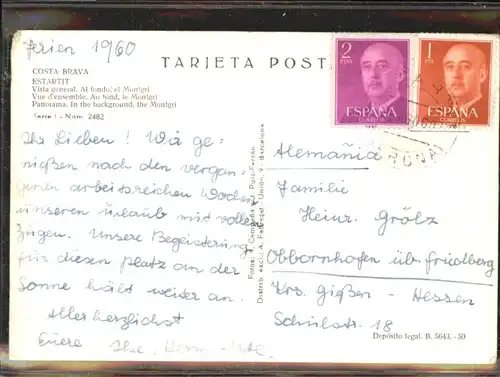 Ferien 1960
COSTA BRAVA
ESTARTIT
Vista general. Al fondo: el Montgri
Vue d'ensemble. Au fond, le Montgri
Panorama. In the background, the Montgri
Serie I - Núm. 2482
TARJETA POST
2 PTAS
ESPAÑA
CORREOS
1 PTA
ESPAÑA
CORREOS
Ihr Lieben! Wir ge-
nießen nach den vergan-
genen arbeitsreichen Wochen
unseren Urlaub mit vollen
Zügen. Unsere Begeisterung
für diesen Platz an der
Sonne hält weiter an.
Allerherzlichst
Euere
Fotos: J. Cebollero y J. Puig-Ferrán
Distrib. excl.: A. Unión, 9 - Barcelona
Alemañia
Familie
Heinz Grölz
Obbornhofen üb Friedberg
Krs. Gießen - Hessen
Schulstr. 18
Depósito legal. B. 5643. - 59